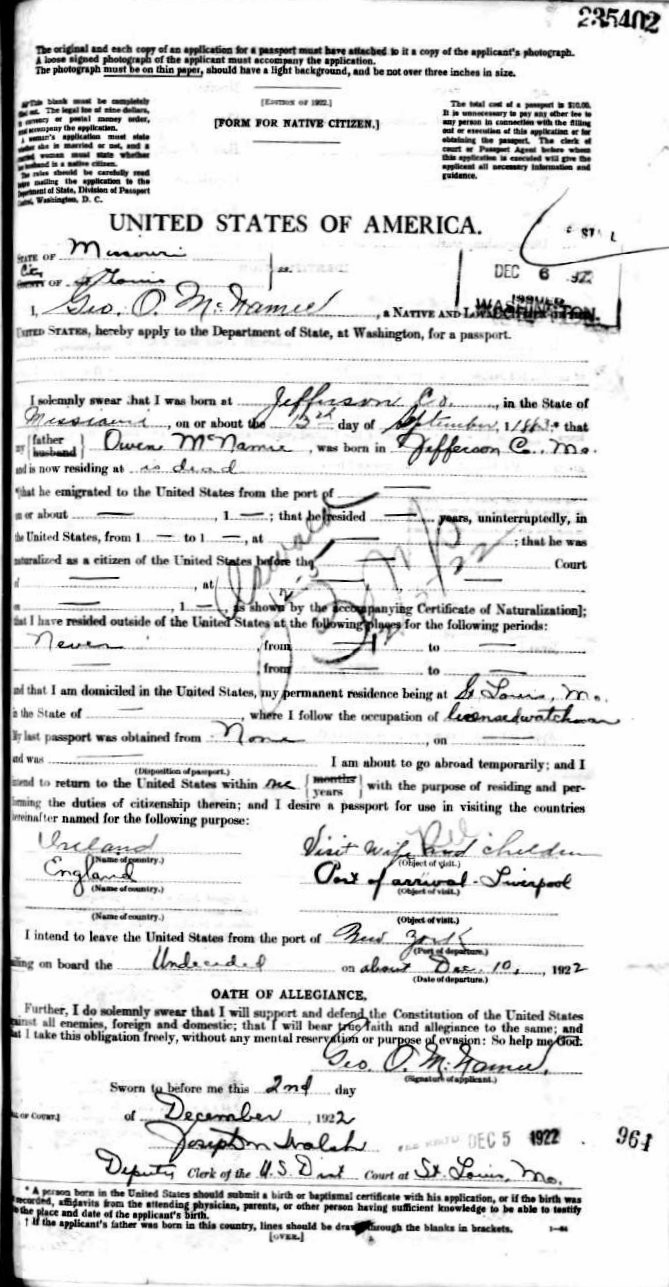 235402
The original and each copy of an application for a passport must have attached to it a copy of the applicant's photograph.
A loose signed photograph of the applicant must accompany the application.
The photograph must be on thin paper, should have a light background, and be not over three inches in size.
This blank must be completely
out. The legal fee of nine dollars,
currency or postal money order,
accompany the application.
A woman's application must state
she is married or not, and a
married woman must state whether
husband is a native citizen.
The rules should be carefully read
mailing the application to the
Department of State, Division of Passport
Washington, D. C.
[EDITION OF 1922.]
[FORM FOR NATIVE CITIZEN.]
The total cost of a passport is $10.00.
It is unnecessary to pay any other fee to
any person in connection with the filling
out or execution of this application or for
obtaining the passport. The clerk of
court or Passport Agent before whom
this application is executed will give the
applicant all necessary information and
guidance.
UNITED STATES OF AMERICA.
STATE OF Missouri
City
COUNTY OF St Louis } ss.
DEC 6 1922
ISSUED
WASHINGTON.
I, Geo. O. McNamee, a NATIVE AND
UNITED STATES, hereby apply to the Department of State, at Washington, for a passport.
I solemnly swear that I was born at Jefferson Co., in the State of
Missouri, on or about the 13th day of September, 1863; that
my {father husband} Owen McNamee, was born in Jefferson C., Mo.
and is now residing at is dead
that he emigrated to the United States from the port of —
on or about —, 1—; that he resided — years, uninterruptedly, in
the United States, from 1— to 1—, at —; that he was
naturalized as a citizen of the United States before the — Court
of —, at —
on —, 1—, as shown by the accompanying Certificate of Naturalization];
that I have resided outside of the United States at the following places for the following periods:
Never, from — to —
—, from — to —
and that I am domiciled in the United States, my permanent residence being at St. Louis, Mo.
in the State of —, where I follow the occupation of licensed watchman
My last passport was obtained from None, on —
and was — I am about to go abroad temporarily; and I
(Disposition of passport.)
intend to return to the United States within one {months years} with the purpose of residing and per-
forming the duties of citizenship therein; and I desire a passport for use in visiting the countries
hereinafter named for the following purpose:
Ireland Visit wife and children
(Name of country.) (Object of visit.)
England Port of arrival - Liverpool
(Name of country.) (Object of visit.)
(Name of country.) (Object of visit.)
I intend to leave the United States from the port of New York
(Port of departure.)
sailing on board the Undecided on about Dec. 10, 1922
(Date of departure.)
OATH OF ALLEGIANCE.
Further, I do solemnly swear that I will support and defend the Constitution of the United States
against all enemies, foreign and domestic; that I will bear true faith and allegiance to the same; and
that I take this obligation freely, without any mental reservation or purpose of evasion: So help me God.
Geo. O. McNamee,
(Signature of applicant.)
Sworn to before me this 2nd day
OF COURT.] of December, 1922
Joseph M Walsh DEC 5 1922 961
Deputy Clerk of the U.S. Dist Court at St. Louis, Mo.
* A person born in the United States should submit a birth or baptismal certificate with his application, or if the birth was
recorded, affidavits from the attending physician, parents, or other person having sufficient knowledge to be able to testify
to the place and date of the applicant's birth.
† If the applicant's father was born in this country, lines should be drawn through the blanks in brackets.
[OVER.]